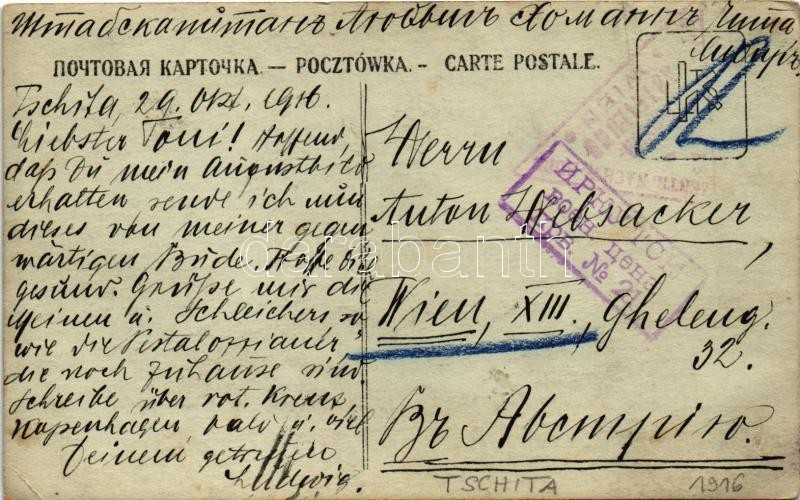 Штабскапитанъ Людвигъ Хоманнъ, Чита
Сибирь
ПОЧТОВАЯ КАРТОЧКА. — POCZTÓWKA. - CARTE POSTALE.
Tschita, 29. Okt. 1916.
Liebster Toni! Hoffend,
daß Du mein Augustbild
erhalten sende ich nun
dieses von meiner gegen
wärtigen Bude. Hoffe Dich
gesund. Grüße mir die
Meinen u. Schleichers so
wie die Pestalozzianer,
die noch zuhause sind
Schreibe über rot. Kreuz
Kopenhagen bald u. viel
Deinem getreuen
Ludwig.
Herrn
Anton Websacker,
Wien, XIII., Gheleng.
32.
Въ Австрію.
воен. ценз.
№
darabanth
TSCHITA 1916